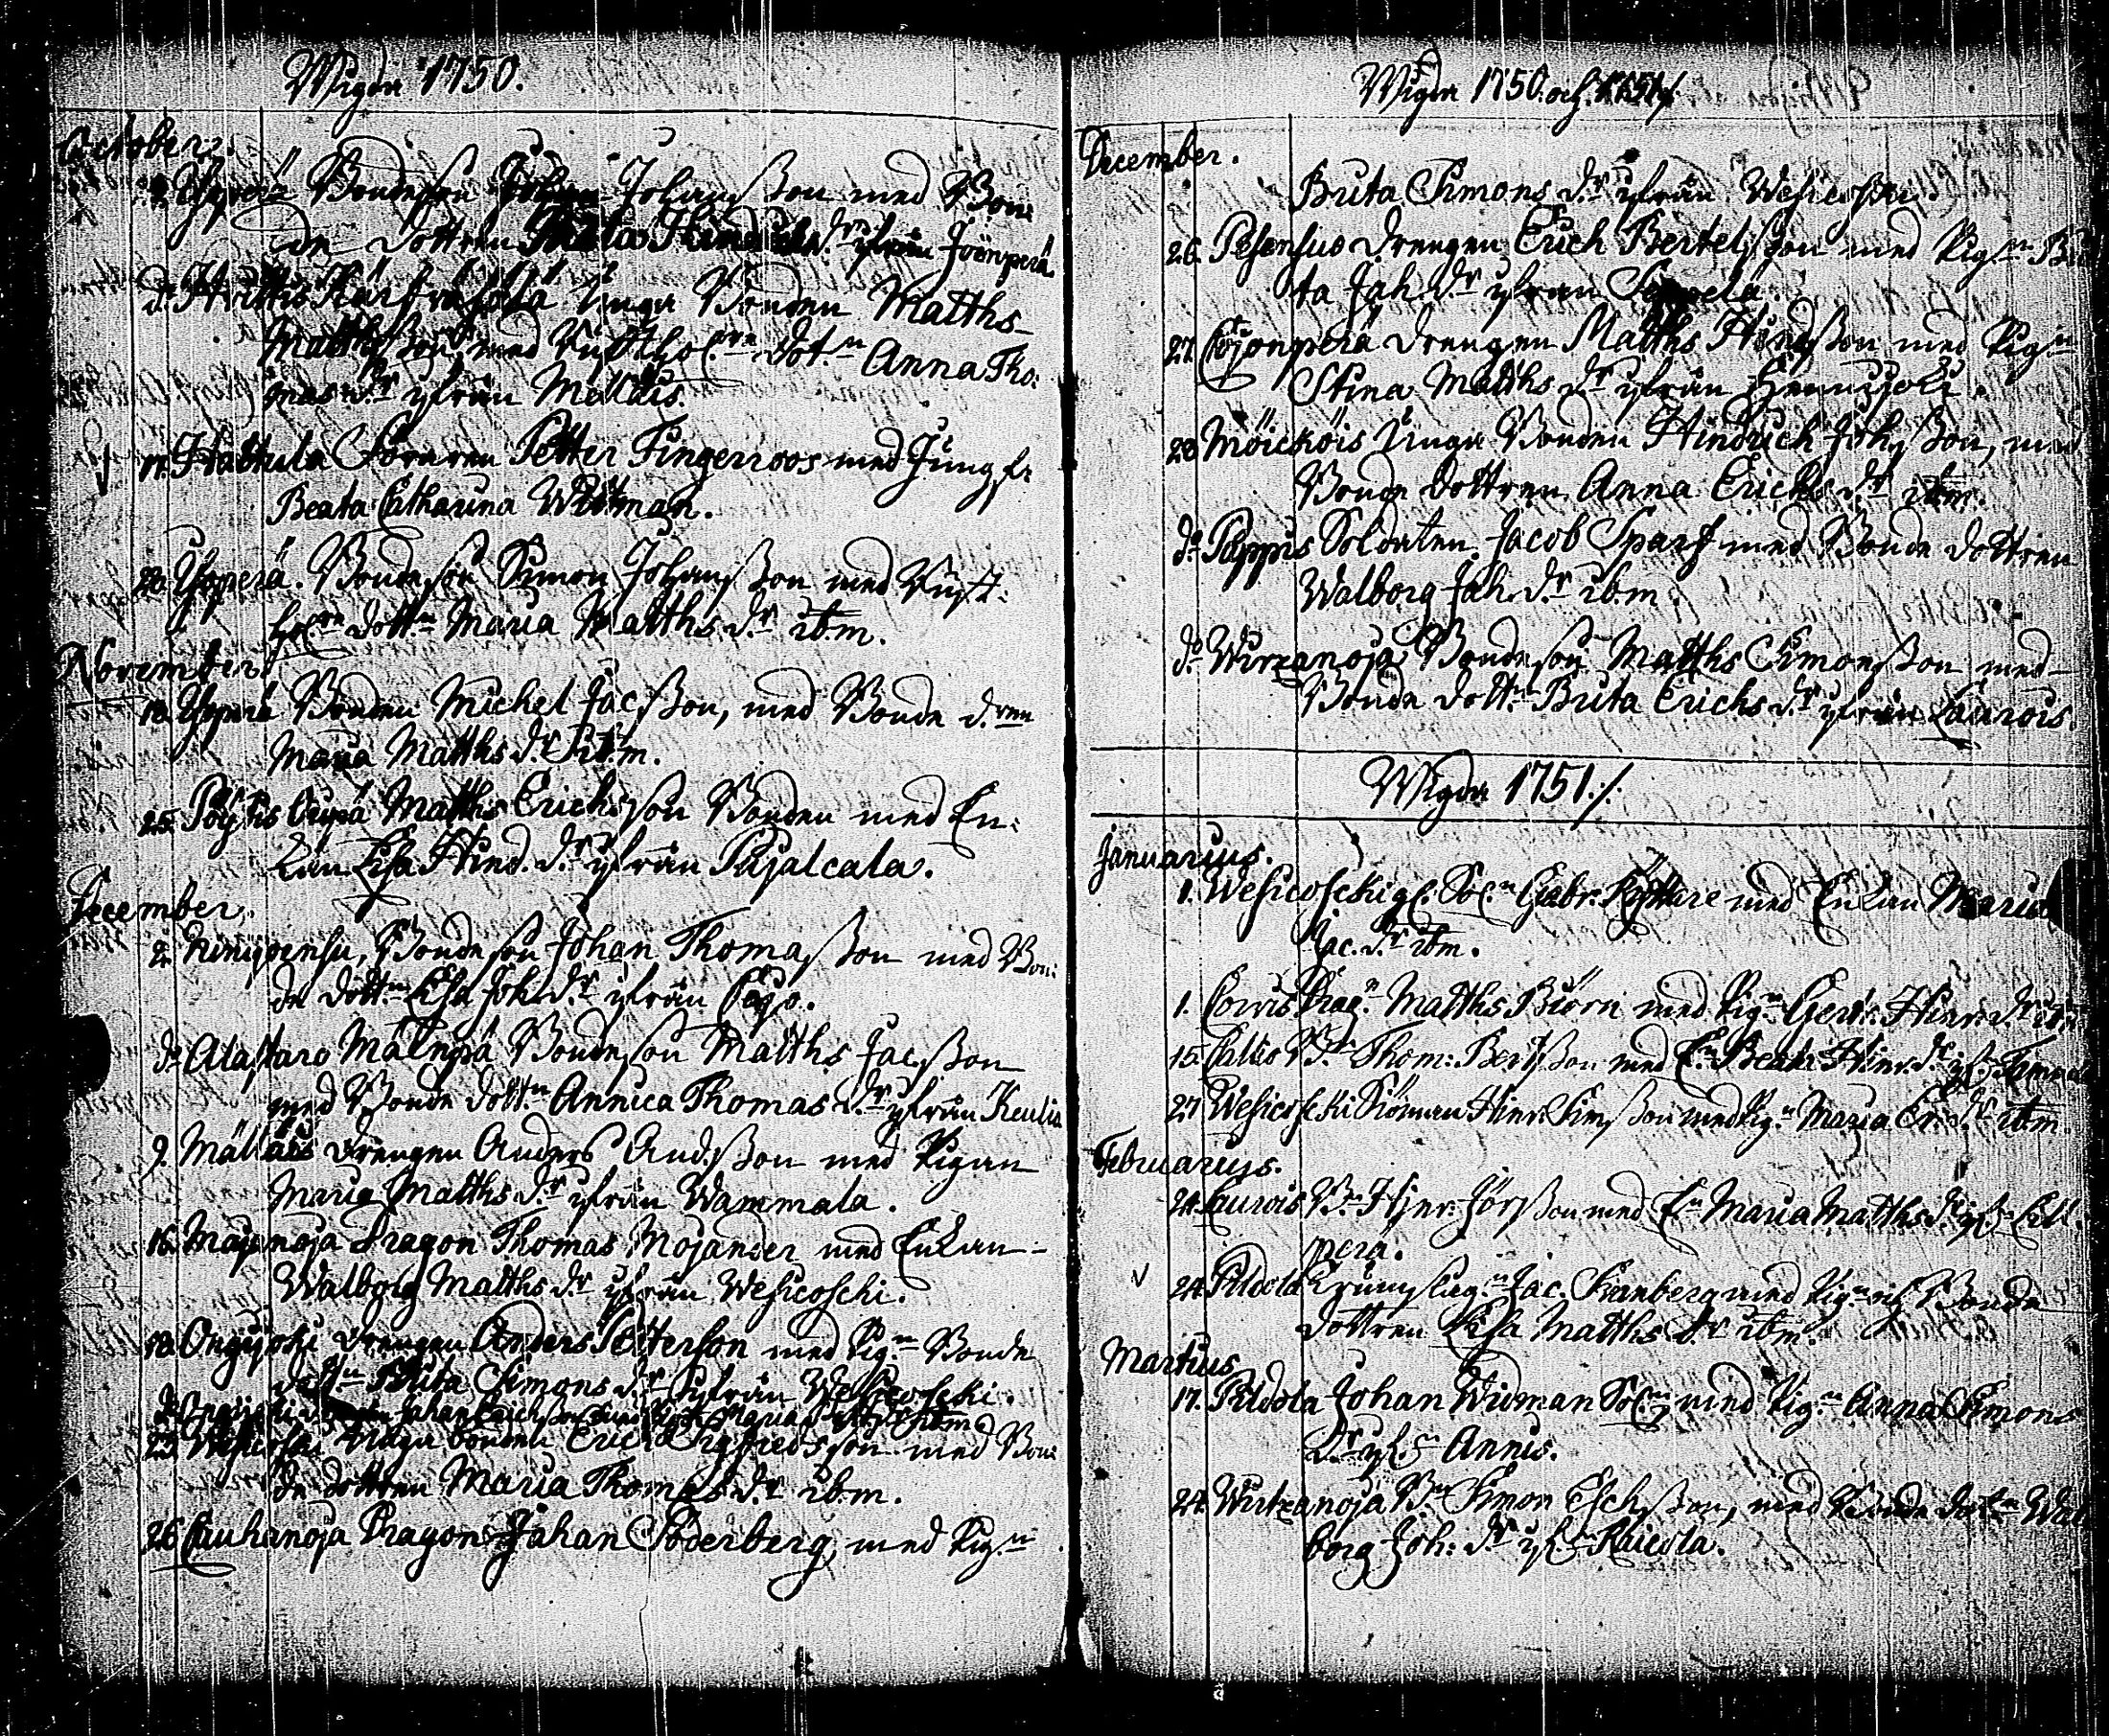 Wigde 1750.
October.
Yperä Bondeson Johan Johansson med Bon-
de dottren Hindrichs dr ifrån Jöönperä
do Huittis unga Bonden Matths
Matthsson, med Rusthol.rns dotn Anna Tho-
mas dr ifrån Mälläis.
17. Hattula Petter Fingerroos med Jungfr
Beata Catharina Wittman.
20. Yperä. Bondeson Simon Johansson med Rust-
hol.rns dottn Maria Matths dr ibm.
November
18. Yperä Bonden Michel Jacsson, med Bonde d.ren
Maria Matths dr ibm.
25. Pöytis Matths Erichsson Bonden med En-
kan Lisa Hind. dr ifrån Pajalcala.
December.
2. Niinijoensu, Bondeson Johan Thomasson med Bon-
de dottn Lisa Joh. dr ifrån
do Alastaro Mälnpä Bondeson Matths Jacsson
med Bonde dottn Annica Thomas dr ifrån Keulia
9. Mälläis drengen Anders Andsson med Pigan
Maria Matths dr ifrån Wammala.
16. Majanoja Dragon Thomas Mojander med Enkan
Walborg Matths dr ifrån Wesicoschi.
18. Ongijoki drengen Anders Petterson med Pign Bonde
dottn Brita Simons dr ifrån Wesicoscki.
do Johan Erichsson med Maria ibm
23. Wesicoski unga bonden Erich Sigfredsson med Bon-
de dottren Maria Thomas dr ibm.
26 Cauhanoja Dragon Johan Söderberg, med Pign
Wigde 1750. och 1751./.
December.
Brita Simons dr ifrån Wesicoscki.
26. Pesensuo drengen Erich Bertelsson med Pign Bri
ta Joh. dr ifrån
27. Cojonperä drengen Matths Hindsson med Pign
Stina Matths dr ifrån Hennijoki.
28 Möicköis unga Bonden Hindrich Johsson, med
Bonde dottren Anna Erichs dr ibm.
do Pappis Soldaten Jacob Sparf med Bonde dottren
Walborg Joh. dr ibm.
do Wirzanoja Bondeson Matths Simonsson med
Bonde dottn Brita Erichs dr ifrån Laurois.
Wigde 1751./.
Januarius.
1. Wesicoscki Sol.n Gabr. Ryttare med Enkan Maria
Jac. dr ibm.
1. Corvis Drag.n Matths Biörn med Pign Gertr. Hinr. dr ibm
15. Callis Bn Thom: Bertsson med En Beata Hinr. dr
27. Wesicoscki Hinr. Simsson med Pign Maria Er. dr ibm.
Februarius.
24. Laurois Bn Hinr. Jörsson med En Maria Matths dr ifn Cill-
perä.
24. Pildola Jac. Kranberg med Pign och Bonde
dottren Lisa Matths dr ibm.
Martius
17. Pildola Johan Widman Sol.n med Pign Anna Simons
dr ifn Annis.
24. Wirtzanoja Bn Simon Eschsson, med Bonde dottn Wal
borg Joh: dr ifn Raicola.